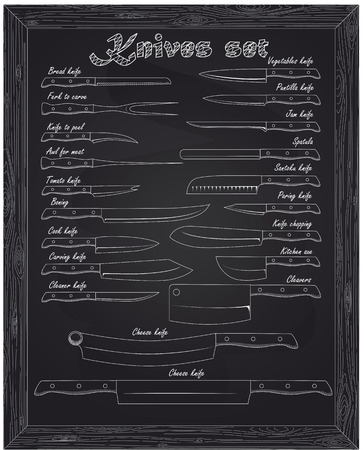 Knives set
Bread knife
Fork to carve
Knife to peel
Awl for meat
Tomato knife
Boning
Cook knife
Carving knife
Cleaner knife
Vegetables knife
Puntilla knife
Jam knife
Spatula
Santoku knife
Paring knife
Knife chopping
Kitchen axe
Cleavers
Cheese knife
Cheese knife